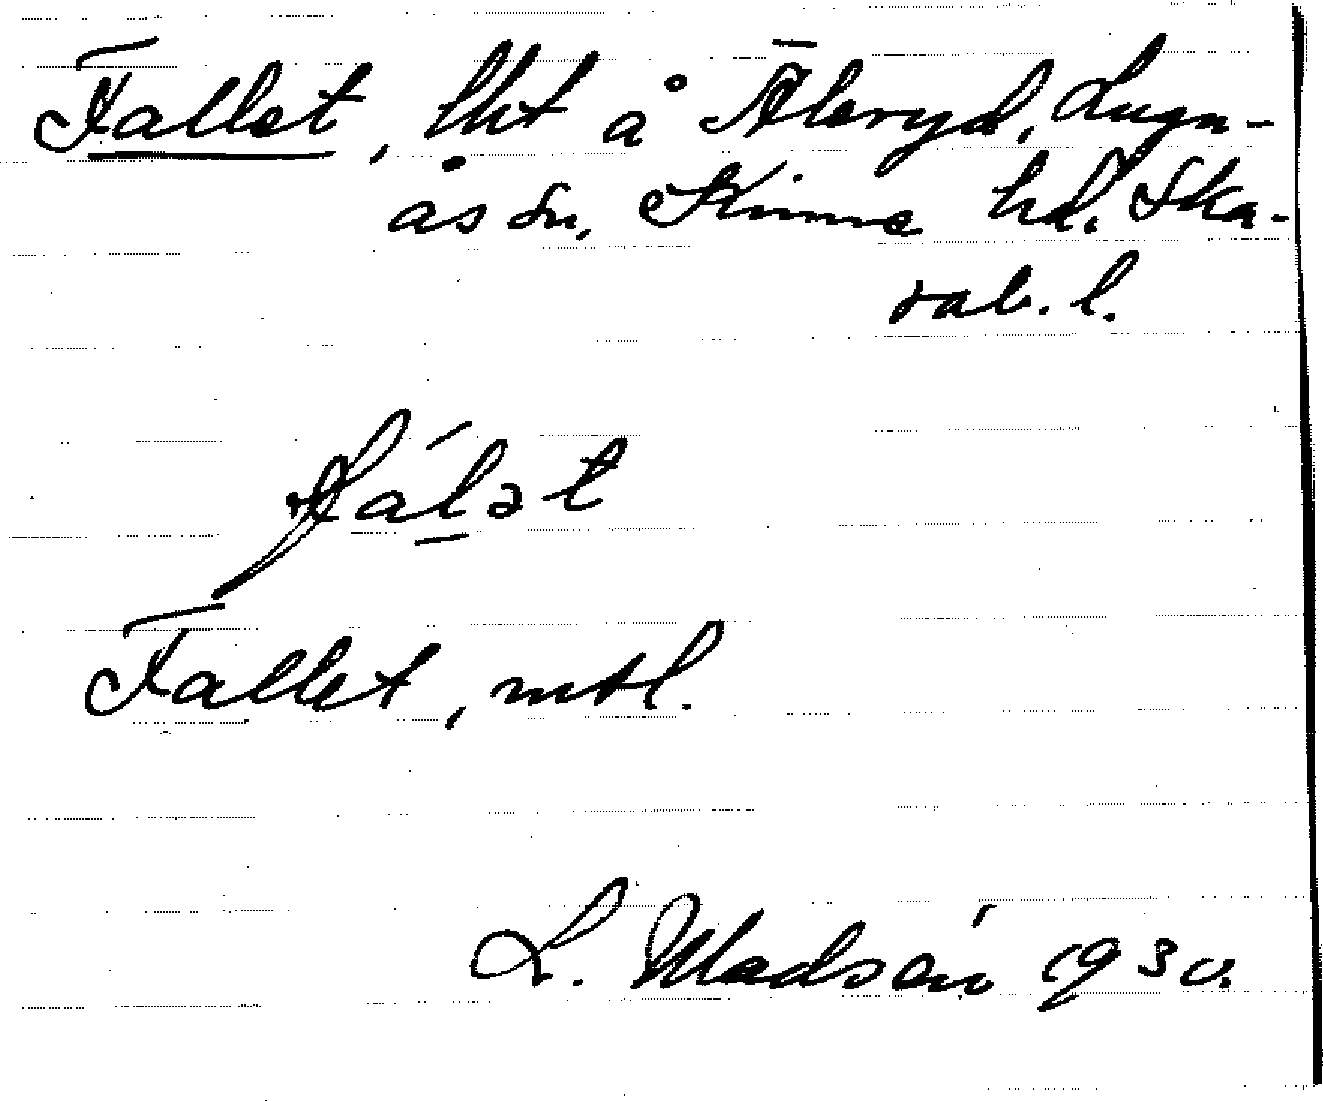 Fallet, lht å Äleryd, Lugn-
ås sn, Kinne hd. Ska-
rab. l.
fálət
Fallet, mtl.
L. Madsén 1930.